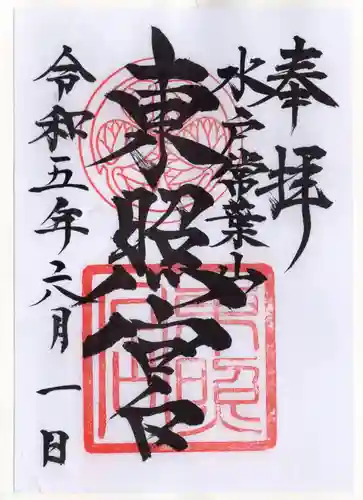 奉拝
水戸常葉山
東照宮
令和五年六月一日